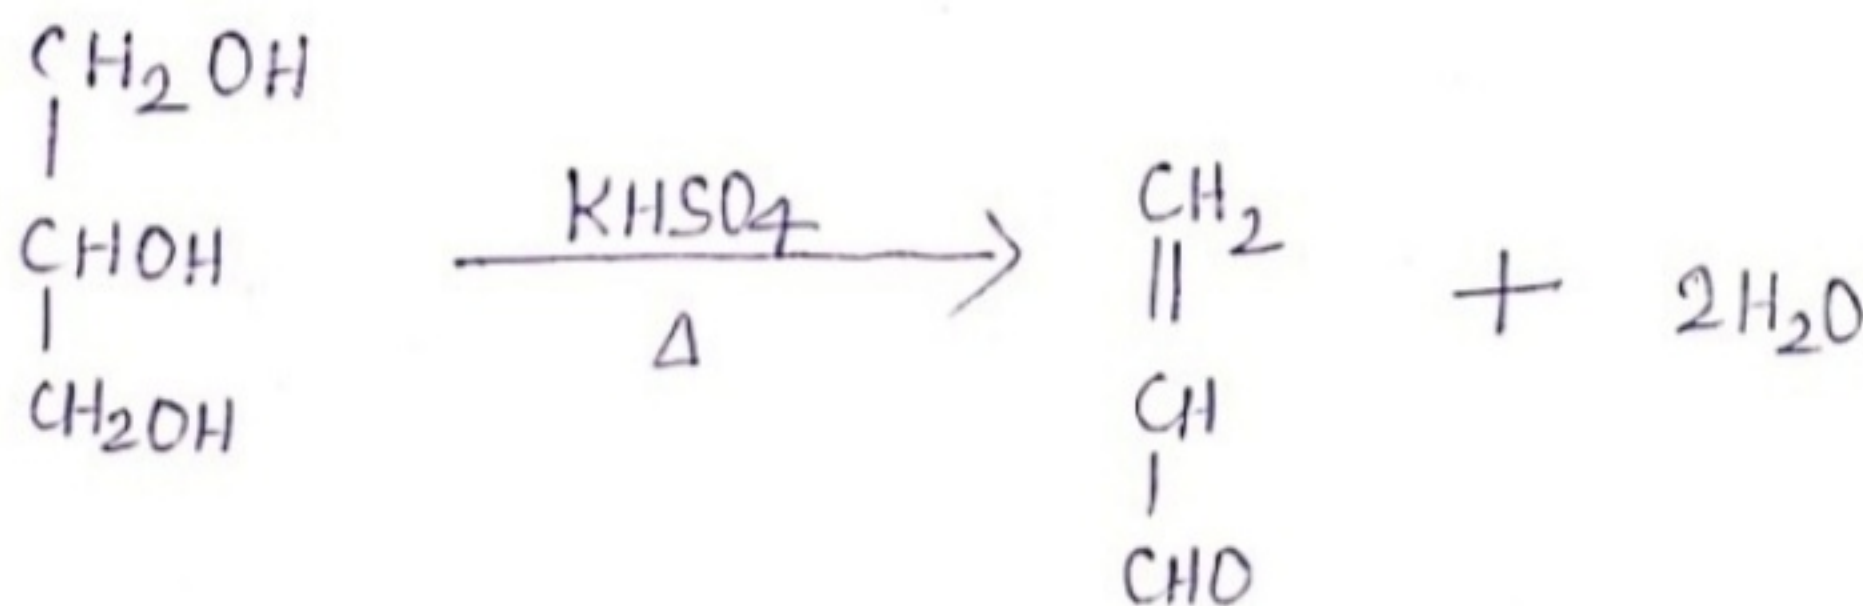 CH₂OH
|
CHOH
|
CH₂OH
KHSO₄
⟶
Δ
CH₂
||
CH
|
CHO
+ 2H₂O